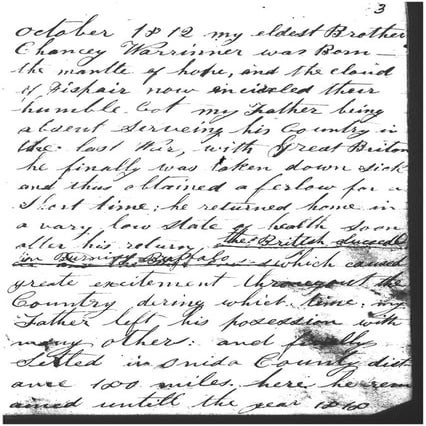 3
October 1812 my eldest Brother
Chancey Warrinner was Born —
the mantle of hope, and the cloud
of Dispair now encircled their
humble Cot my Father being
absent Serveing his Country in
the last War, with Great Briton
he finally was taken down sick
and thus obtained a ferlow for a
Short time; he returned home in
a vary low State of health soon
after his return the British Succeded
in Burning Buffalo which caused
greate excitement througout the
Country dering which time, my
Father left his posession with
many others: and finally
Setled in Onida County dist
ance 180 miles. here he rem
ained untill the year 1818